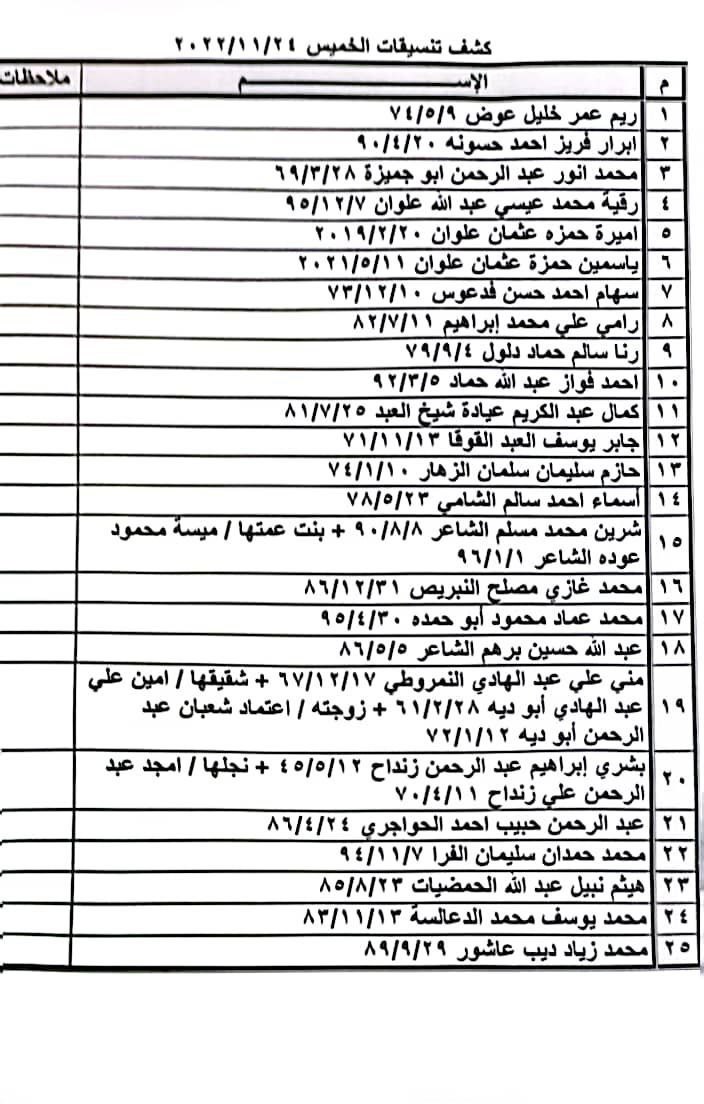 كشف تنسيقات الخميس ٢٠٢٢/١١/٢٤
م الإســـــــــــــــــم ملاحظات
١ ريم عمر خليل عوض ٧٤/٥/٩
٢ ابرار فريز احمد حسونه ٩٠/٤/٢٠
٣ محمد انور عبد الرحمن ابو جميزة ٦٩/٣/٢٨
٤ رقية محمد عيسي عبد الله علوان ٩٥/١٢/٧
٥ اميرة حمزه عثمان علوان ٢٠١٩/٢/٢٠
٦ ياسمين حمزة عثمان علوان ٢٠٢١/٥/١١
٧ سهام احمد حسن قدعوس ٧٣/١٢/١٠
٨ رامي علي محمد إبراهيم ٨٢/٧/١١
٩ رنا سالم حماد دلول ٧٩/٩/٤
١٠ احمد فواز عبد الله حماد ٩٢/٣/٥
١١ كمال عبد الكريم عيادة شيخ العبد ٨١/٧/٢٥
١٢ جابر يوسف العبد القوقا ٧١/١١/١٣
١٣ حازم سليمان سلمان الزهار ٧٤/١/١٠
١٤ أسماء احمد سالم الشامي ٧٨/٥/٢٣
١٥ شرين محمد مسلم الشاعر ٩٠/٨/٨ + بنت عمتها / ميسة محمود
عوده الشاعر ٩٦/١/١
١٦ محمد غازي مصلح النبريص ٨٦/١٢/٣١
١٧ محمد عماد محمود أبو حمده ٩٥/٤/٣٠
١٨ عبد الله حسين برهم الشاعر ٨٦/٥/٥
١٩ مني علي عبد الهادي النمروطي ٦٧/١٢/١٧ + شقيقها / امين علي
عبد الهادي أبو ديه ٦١/٢/٢٨ + زوجته / اعتماد شعبان عبد
الرحمن أبو ديه ٧٢/١/١٢
٢٠ بشري إبراهيم عبد الرحمن زنداح ٤٥/٥/١٢ + نجلها / امجد عبد
الرحمن علي زنداح ٧٠/٤/١١
٢١ عبد الرحمن حبيب احمد الحواجري ٨٦/٤/٢٤
٢٢ محمد حمدان سليمان الفرا ٩٤/١١/٧
٢٣ هيثم نبيل عبد الله الحمضيات ٨٥/٨/٢٣
٢٤ محمد يوسف محمد الدعالسة ٨٣/١١/١٣
٢٥ محمد زياد ديب عاشور ٨٩/٩/٢٩